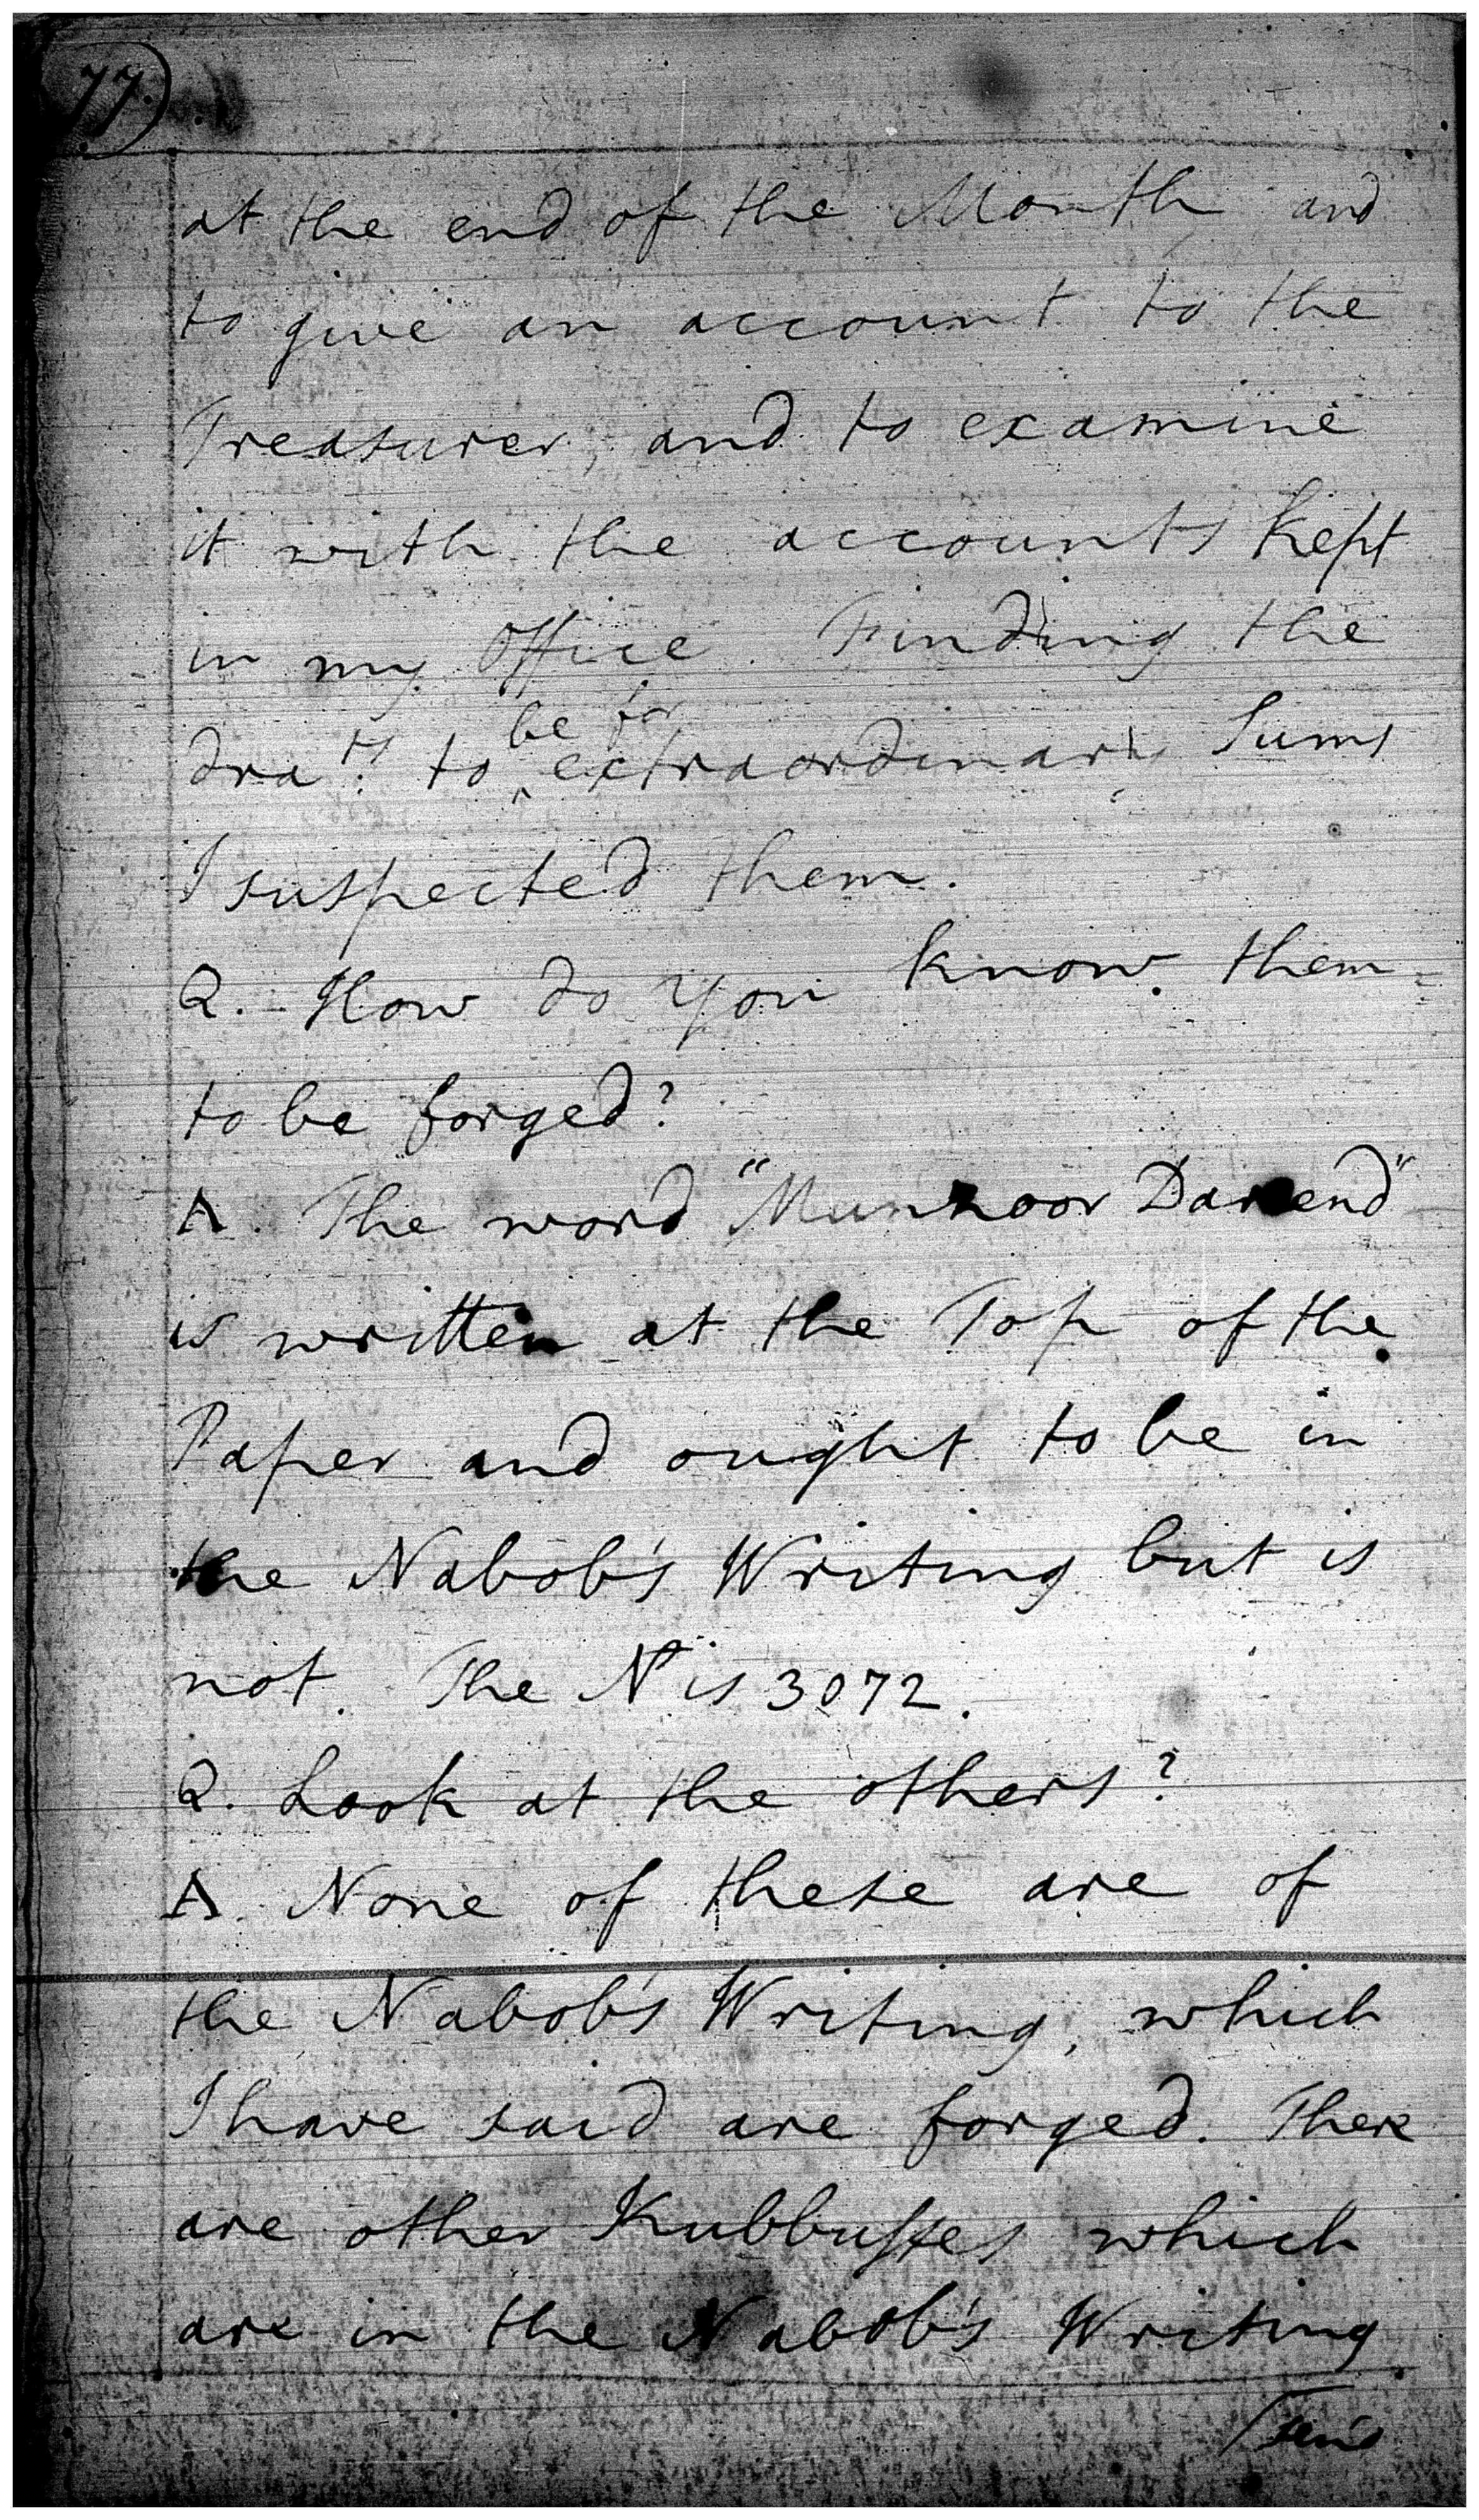 77.)
at the end of the Month and
to give an account to the
Treasurer, and to examine
it with the accounts kept
in my Office. Finding the
be for
dra.ts to ‸ extraordinary Sums
I suspected them.
Q. How do you know them
to be forged?
A. The word "Munzoor Darend"
is written at the Top of the
Paper and ought to be in
the Nabob's Writing but is
not. The No is 3072.
Q. Look at the others?
A. None of these are of
the Nabob's Writing, which
I have said are forged. There
are other Kubbusses which
are in the Nabob's Writing.